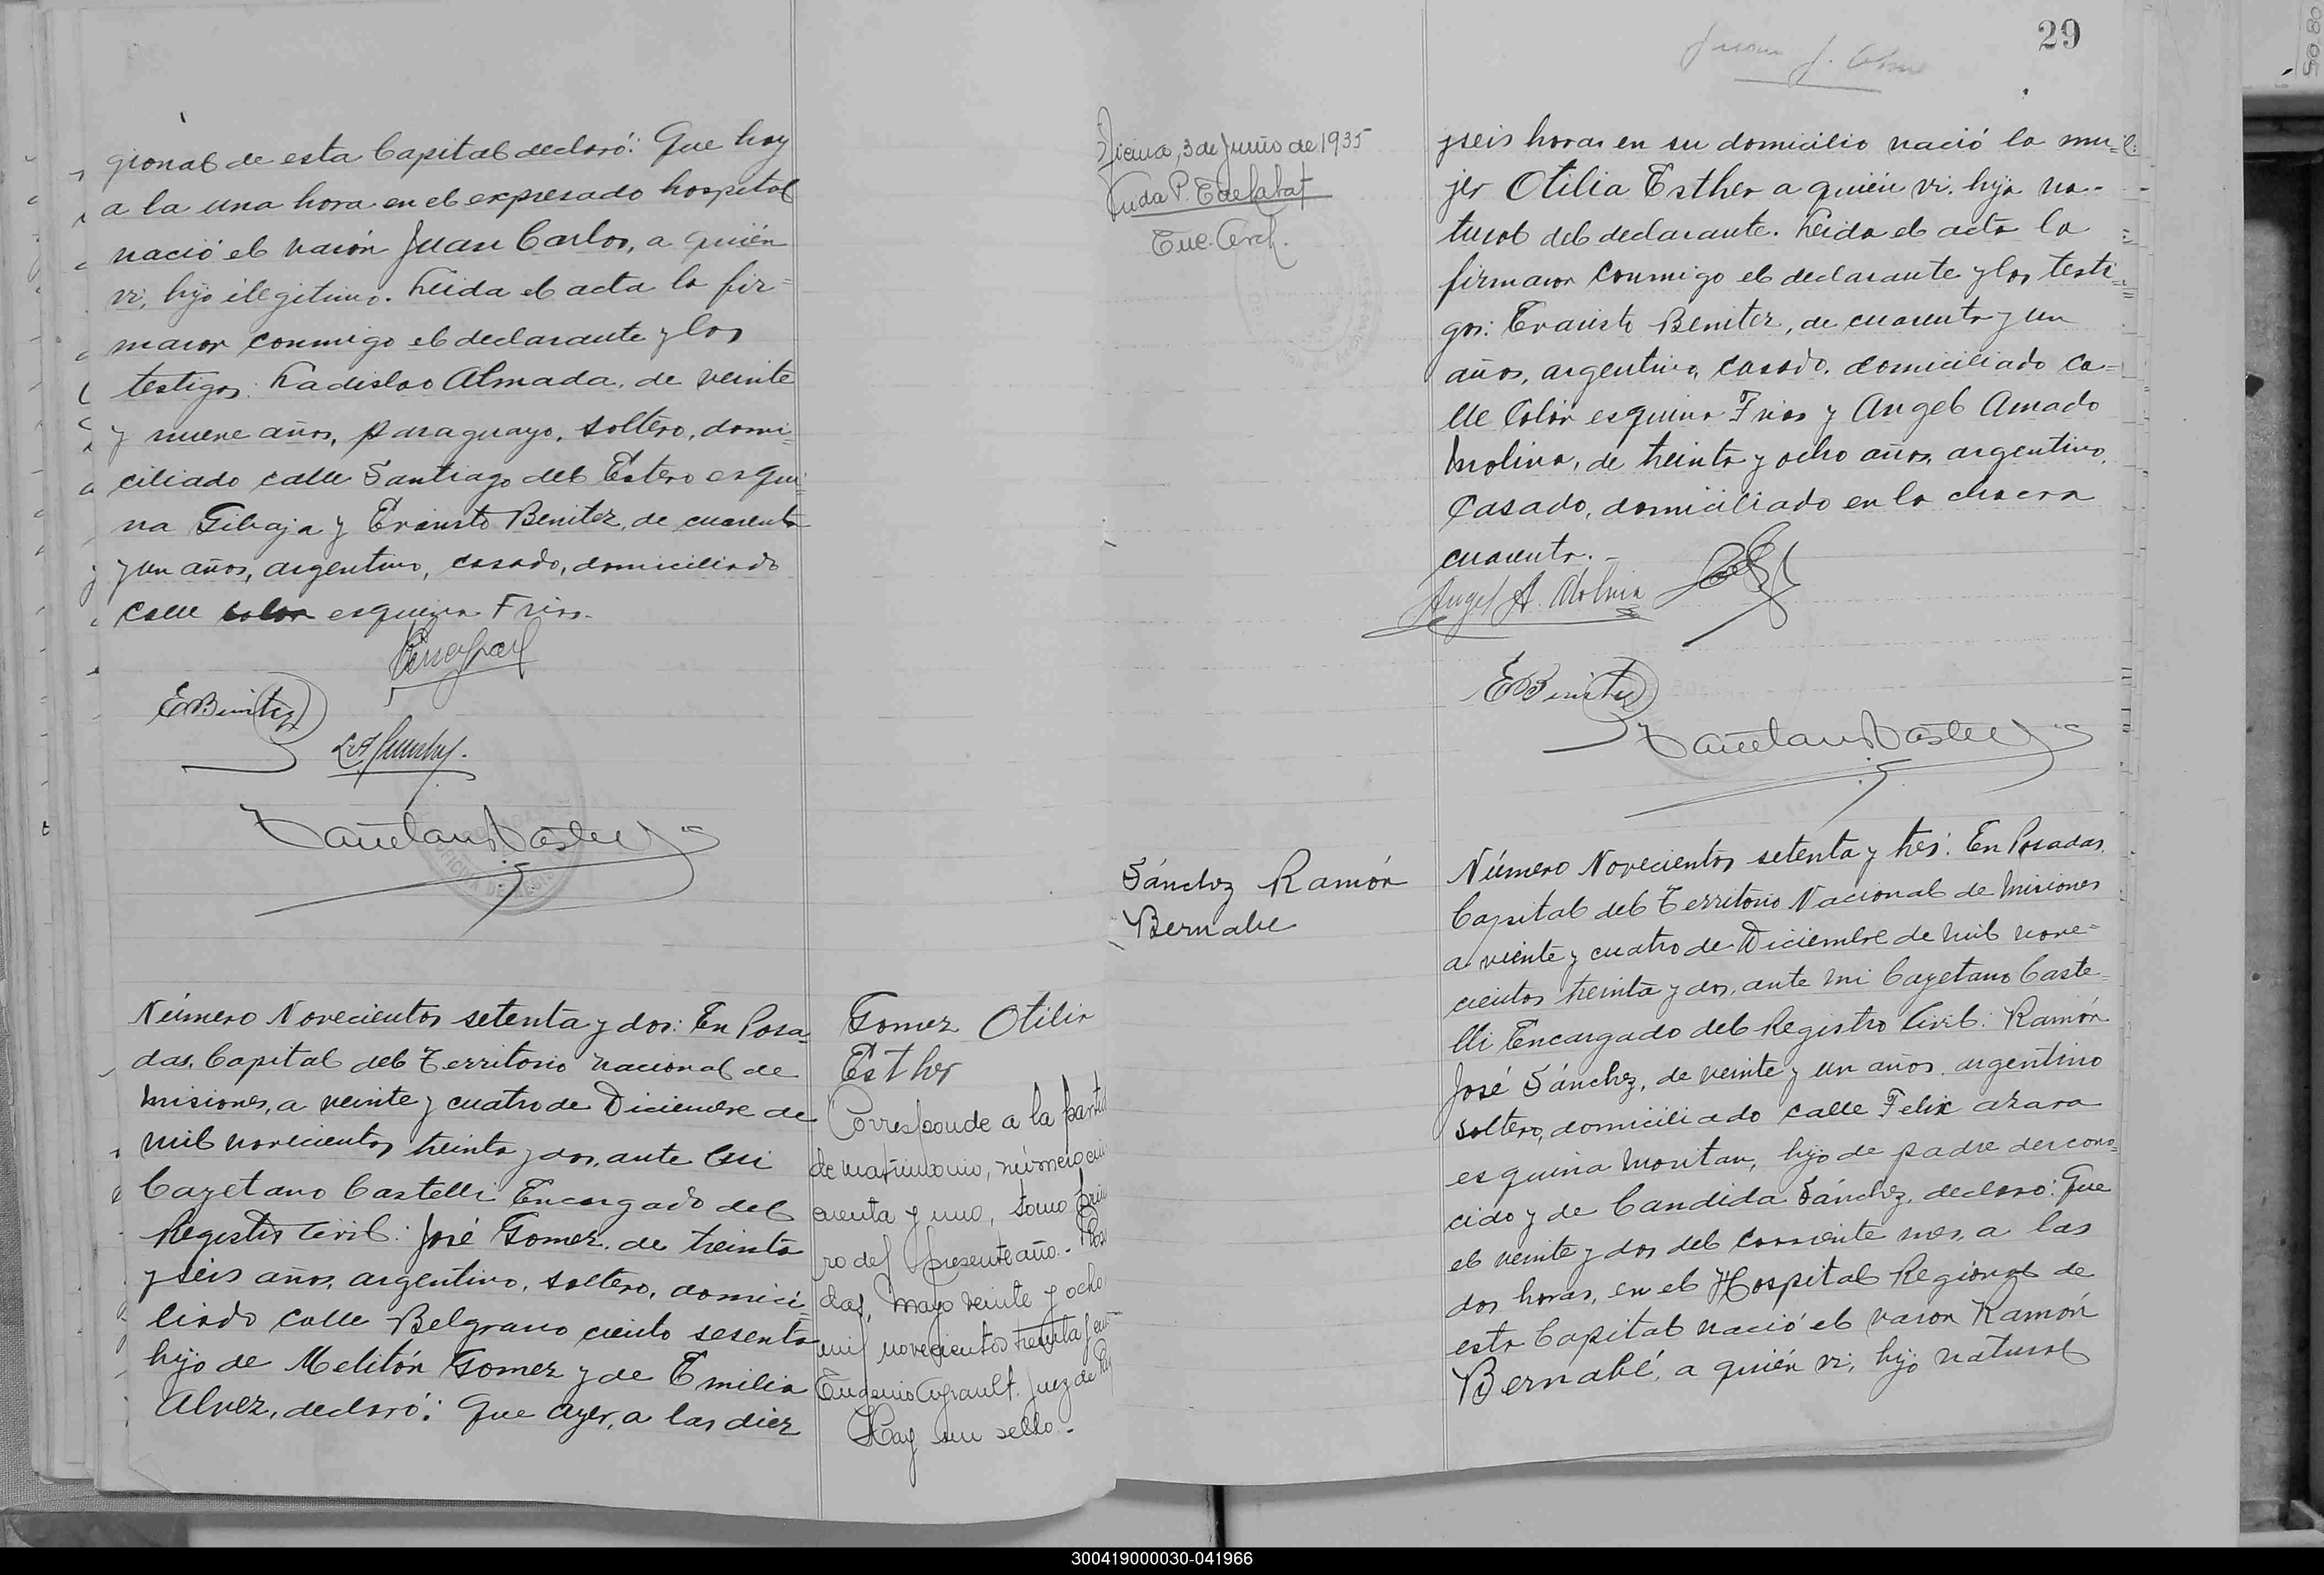 gional de esta Capital declaró: Que hoy
a la una hora en el expresado hospital
nació el varón Juan Carlos, a quién
vi, hijo ilegitimo. Leida el acta la fir=
maron conmigo el declarante y los
testigos: Ladislao Almada, de veinte
y nueve años, paraguayo, soltero, domi=
ciliado calle Santiago del Estero esqui=
na Gibaja y Evaristo Benitez, de cuarenta
y un años, argentino, casado, domiciliado
calle Colon esquina Frias.-
EBenitez
Número Novecientos setenta y dos: En Posa=
das, Capital del Territorio Nacional de
Misiones, a veinte y cuatro de Diciembre de
mil novecientos treinta y dos, ante mi
Cayetano Castelli Encargado del
Registro Civil: José Gomez, de treinta
y seis años, argentino, soltero, domici=
liado calle Belgrano ciento sesenta
hijo de Melitón Gomez y de Emilia
Alvez, declaró: Que ayer, a las diez
Gomez Otilia
Esther
Corresponde a la
de matrimonio, número
cuenta y uno, tomo
ro del presente año.-
das, Mayo veinte y ocho
mil novecientos treinta
Eugenio Juez de
Hay un sello.-
29
Juan J.
3 de Junio de 1935
yseis horas en su domicilio nació la mu=
jer Otilia Esther a quién vi, hija na-
tural del declarante. Leida el acta la
firmaron conmigo el declarante y los testi=
gos: Evaristo Benitez, de cuarenta y un
años, argentino, casado, domiciliado ca=
lle Colón esquina Frias y Angel Amado
Molina, de treinta y ocho años, argentino,
casado, domiciliado en la chacra
cuarenta.-
Angel A. Molina
EBenitez
Sánchez Ramón
Bernabe
Número Novecientos setenta y tres: En Posadas,
Capital del Territorio Nacional de Misiones
a veinte y cuatro de Diciembre de mil nove=
cientos treinta y dos, ante mi Cayetano Caste=
lli Encargado del Registro Civil: Ramón
José Sánchez, de veinte y un años, argentino
soltero, domiciliado calle Felix azara
esquina Moritan, hijo de padre descono=
cido y de Candida Sánchez, declaró: Que
el veinte y dos del corriente mes, a las
dos horas, en el Hospital Regional de
esta Capital nació el varon Ramón
Bernabé, a quién vi, hijo natural
300419000030-041966